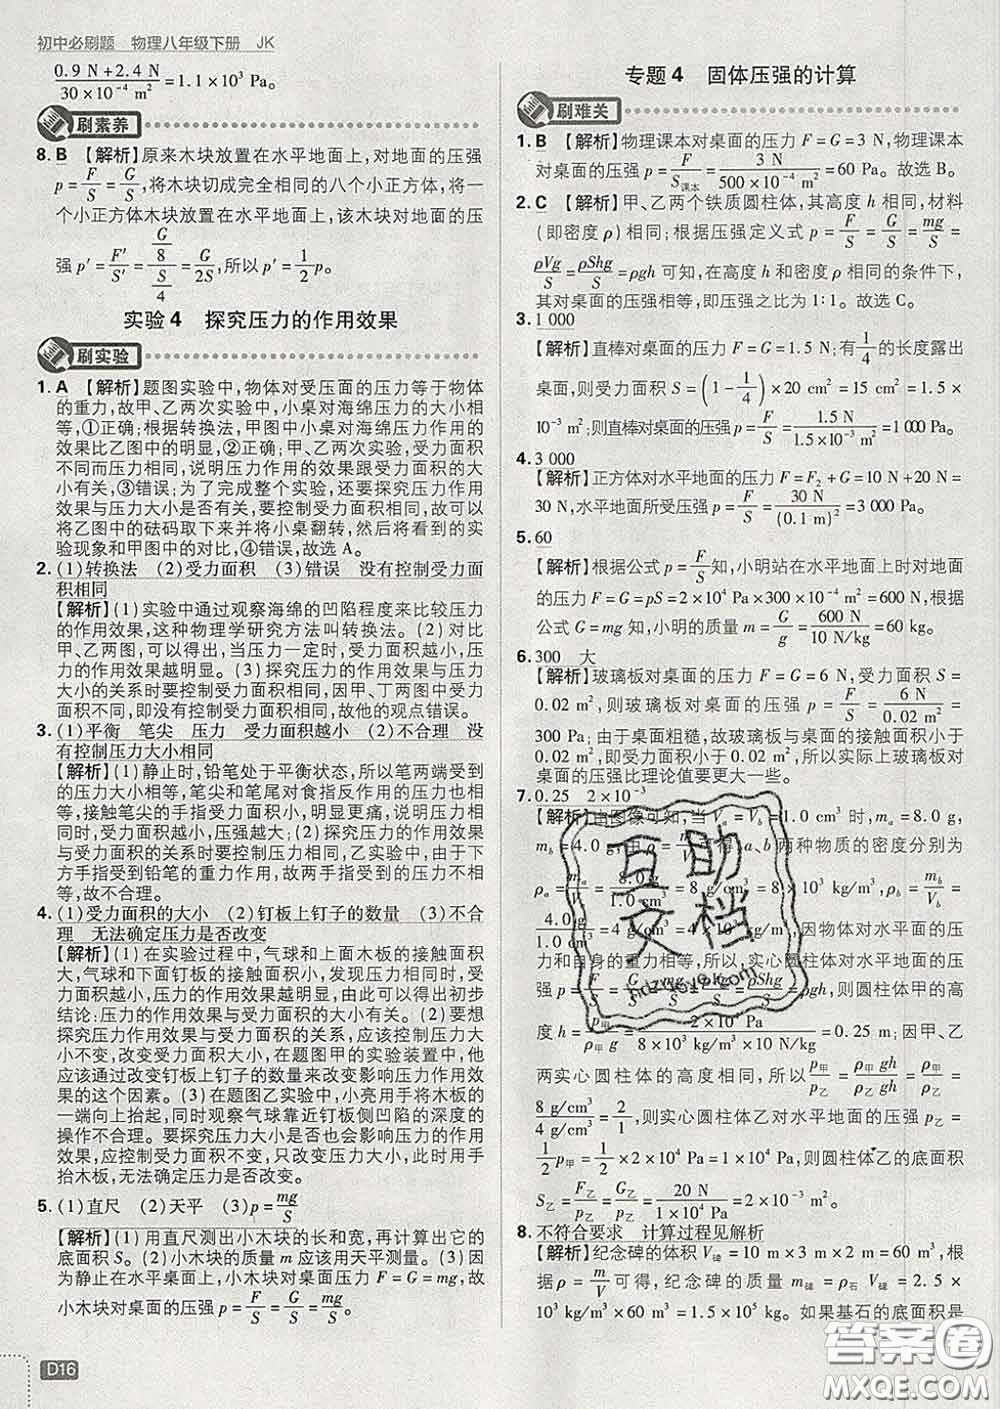 初中必刷题 物理八年级下册 JK
(0.9 N+2.4 N)/(30×10⁻⁴ m²)=1.1×10³ Pa。
刷素养
8. B 【解析】原来木块放置在水平地面上,对地面的压强
p=F/S=G/S,将木块切成完全相同的八个小正方体,将一
个小正方体木块放置在水平地面上,该木块对地面的压
强 p′=F′/S′=(G/8)/(S/4)=G/2S,所以 p′=1/2 p。
实验4 探究压力的作用效果
刷实验
1. A 【解析】题图实验中,物体对受压面的压力等于物体
的重力,故甲、乙两次实验中,小桌对海绵压力的大小相
等,①正确;根据转换法,甲图中小桌对海绵压力作用的
效果比乙图中的明显,②正确;甲、乙两次实验,受力面积
不同而压力相同,说明压力作用的效果跟受力面积的大
小有关,③错误;为了完成整个实验,还要探究压力作用
效果与压力大小是否有关,要控制受力面积相同,故可以
将乙图中的砝码取下来并将小桌翻转,然后将看到的实
验现象和甲图中的对比,④错误,故选 A。
2. (1)转换法 (2)受力面积 (3)错误 没有控制受力面
积相同
【解析】(1)实验中通过观察海绵的凹陷程度来比较压力
的作用效果,这种物理学研究方法叫转换法。(2)对比
甲、乙两图,可以得出,当压力一定时,受力面积越小,压
力的作用效果越明显。(3)探究压力的作用效果与压力
大小的关系时要控制受力面积相同,因甲、丁两图中受力
面积不同,即没有控制受力面积相同,故他的观点错误。
3. (1)平衡 笔尖 压力 受力面积越小 (2)不合理 没
有控制压力大小相同
【解析】(1)静止时,铅笔处于平衡状态,所以笔两端受到
的压力大小相等,笔尖和笔尾对食指反作用的压力也相
等,接触笔尖的手指受力面积小,明显更痛,说明压力相
同时,受力面积越小,压强越大;(2)探究压力的作用效果
与受力面积的关系时要控制压力相同,乙实验中,由于下
方手指受到铅笔的重力作用,故两手指受到的压力不相
等,故不合理。
4. (1)受力面积的大小 (2)钉板上钉子的数量 (3)不合
理 无法确定压力是否改变
【解析】(1)在实验过程中,气球和上面木板的接触面积
大,气球和下面钉板的接触面积小,发现压力相同时,受
力面积越小,压力的作用效果越明显,可以得出的初步结
论:压力的作用效果与受力面积的大小有关。(2)要想
探究压力的作用效果与受力面积的关系,应该控制压力大
小不变,改变受力面积大小,在题图甲的实验装置中,他
应该通过改变钉板上钉子的数量来改变影响压力作用效
果的这个因素。(3)在题图乙实验中,小亮用手将木板的
一端向上抬起,同时观察气球靠近钉板侧凹陷的深度的
操作不合理。要探究压力大小是否也会影响压力的作用
效果,应控制受力面积不变,只改变压力大小,此时用手
抬木板,无法确定压力是否改变。
5. (1)直尺 (2)天平 (3)p=mg/S
【解析】(1)用直尺测出小木块的长和宽,再计算出它的
底面积 S。(2)小木块的质量 m 应该用天平测量。(3)因
为静止在水平桌面上,小木块对桌面压力 F=G=mg,故
小木块对桌面的压强 p=F/S=G/S=mg/S。
D16
专题4 固体压强的计算
刷难关
1. B 【解析】物理课本对桌面的压力 F=G=3 N,物理课
本对桌面的压强 p=F/S课本=3 N/(500×10⁻⁴ m²)=60 Pa。故选 B。
2. C 【解析】甲、乙两个铁质圆柱体,其高度 h 相同,材料
(即密度 ρ)相同;根据压强定义式 p=F/S=G/S=mg/S=
ρVg/S=ρShg/S=ρgh 可知,在高度 h 和密度 ρ 相同的条件下,
其对桌面的压强相等,即压强之比为 1:1。故选 C。
3. 1 000
【解析】直棒对桌面的压力 F=G=1.5 N;有1/4的长度露出
桌面,则受力面积 S=(1-1/4)×20 cm²=15 cm²=1.5×
10⁻³ m²;则直棒对桌面的压强 p=F/S=1.5 N/(1.5×10⁻³ m²)=1 000 Pa。
4. 3 000
【解析】正方体对水平地面的压力 F=F₂+G=10 N+20 N=
30 N,水平地面所受压强 p=F/S=30 N/(0.1 m)²=3 000 Pa。
5. 60
【解析】根据公式 p=F/S知,小明站在水平地面上时对地面
的压力 F=G=pS=2×10⁴ Pa×300×10⁻⁴ m²=600 N,根据
公式 G=mg 知,小明的质量 m=G/g=600 N/(10 N/kg)=60 kg。
6. 300 大
【解析】玻璃板对桌面的压力 F=G=6 N,受力面积 S=
0.02 m²,则玻璃板对桌面的压强 p=F/S=6 N/0.02 m²=
300 Pa;由于桌面粗糙,故玻璃板与桌面的接触面积小于
0.02 m²,即受力面积小于 0.02 m²,所以实际上玻璃板对
桌面的压强比理论值要更大一些。
7. 0.25 2×10⁻³
【解析】由图像可知,当 Vₐ=V_b=1.0 cm³ 时,mₐ=8.0 g,
m_b=4.0 g,由 ρ=m/V可得,a、b 两种物质的密度分别为
ρₐ=mₐ/Vₐ=8.0 g/1.0 cm³=8 g/cm³=8×10³ kg/m³,ρ_b=m_b/V_b=
4.0 g/1.0 cm³=4 g/cm³=4×10³ kg/m³,因物体对水平面的压
力和自身的重力相等,所以,实心圆柱体对水平地面的压
强 p=F/S=G/S=mg/S=ρVg/S=ρShg/S=ρgh,则圆柱体甲的高
度 h=p甲/ρ甲g=2×10⁴ Pa/(8×10³ kg/m³×10 N/kg)=0.25 m;因甲、乙
两实心圆柱体的高度相同,所以p甲/p乙=ρ甲gh/ρ乙gh=ρ甲/ρ乙=
(8 g/cm³)/(4 g/cm³)=2/1,则实心圆柱体乙对水平地面的压强 p乙=
1/2 p甲=1/2×2×10⁴ Pa=1×10⁴ Pa,则圆柱体乙的底面积
S乙=F乙/p乙=G乙/p乙=20 N/(1×10⁴ Pa)=2×10⁻³ m²。
8. 不符合要求 计算过程见解析
【解析】纪念碑的体积 V碑=10 m×3 m×2 m=60 m³,根
据 ρ=m/V可得,纪念碑的质量 m碑=ρ石 V碑=2.5×
10³ kg/m³×60 m³=1.5×10⁵ kg。如果基石的底面积是
互助文档
hdzwgyek.com
答案圈
MXQE.COM